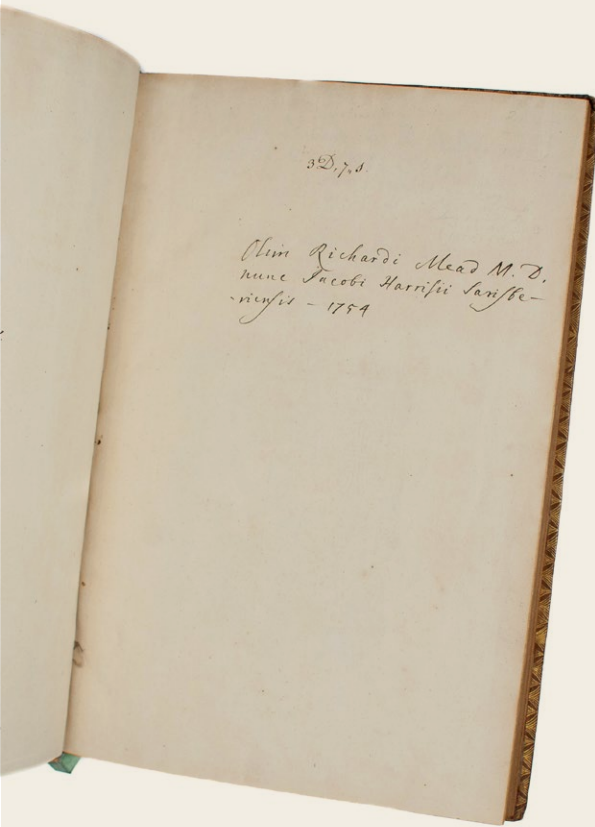 3D.7.8.
Olim Richardi Mead M.D.
nunc Jacobi Harrisii Sarisbe-
-riensis - 1754